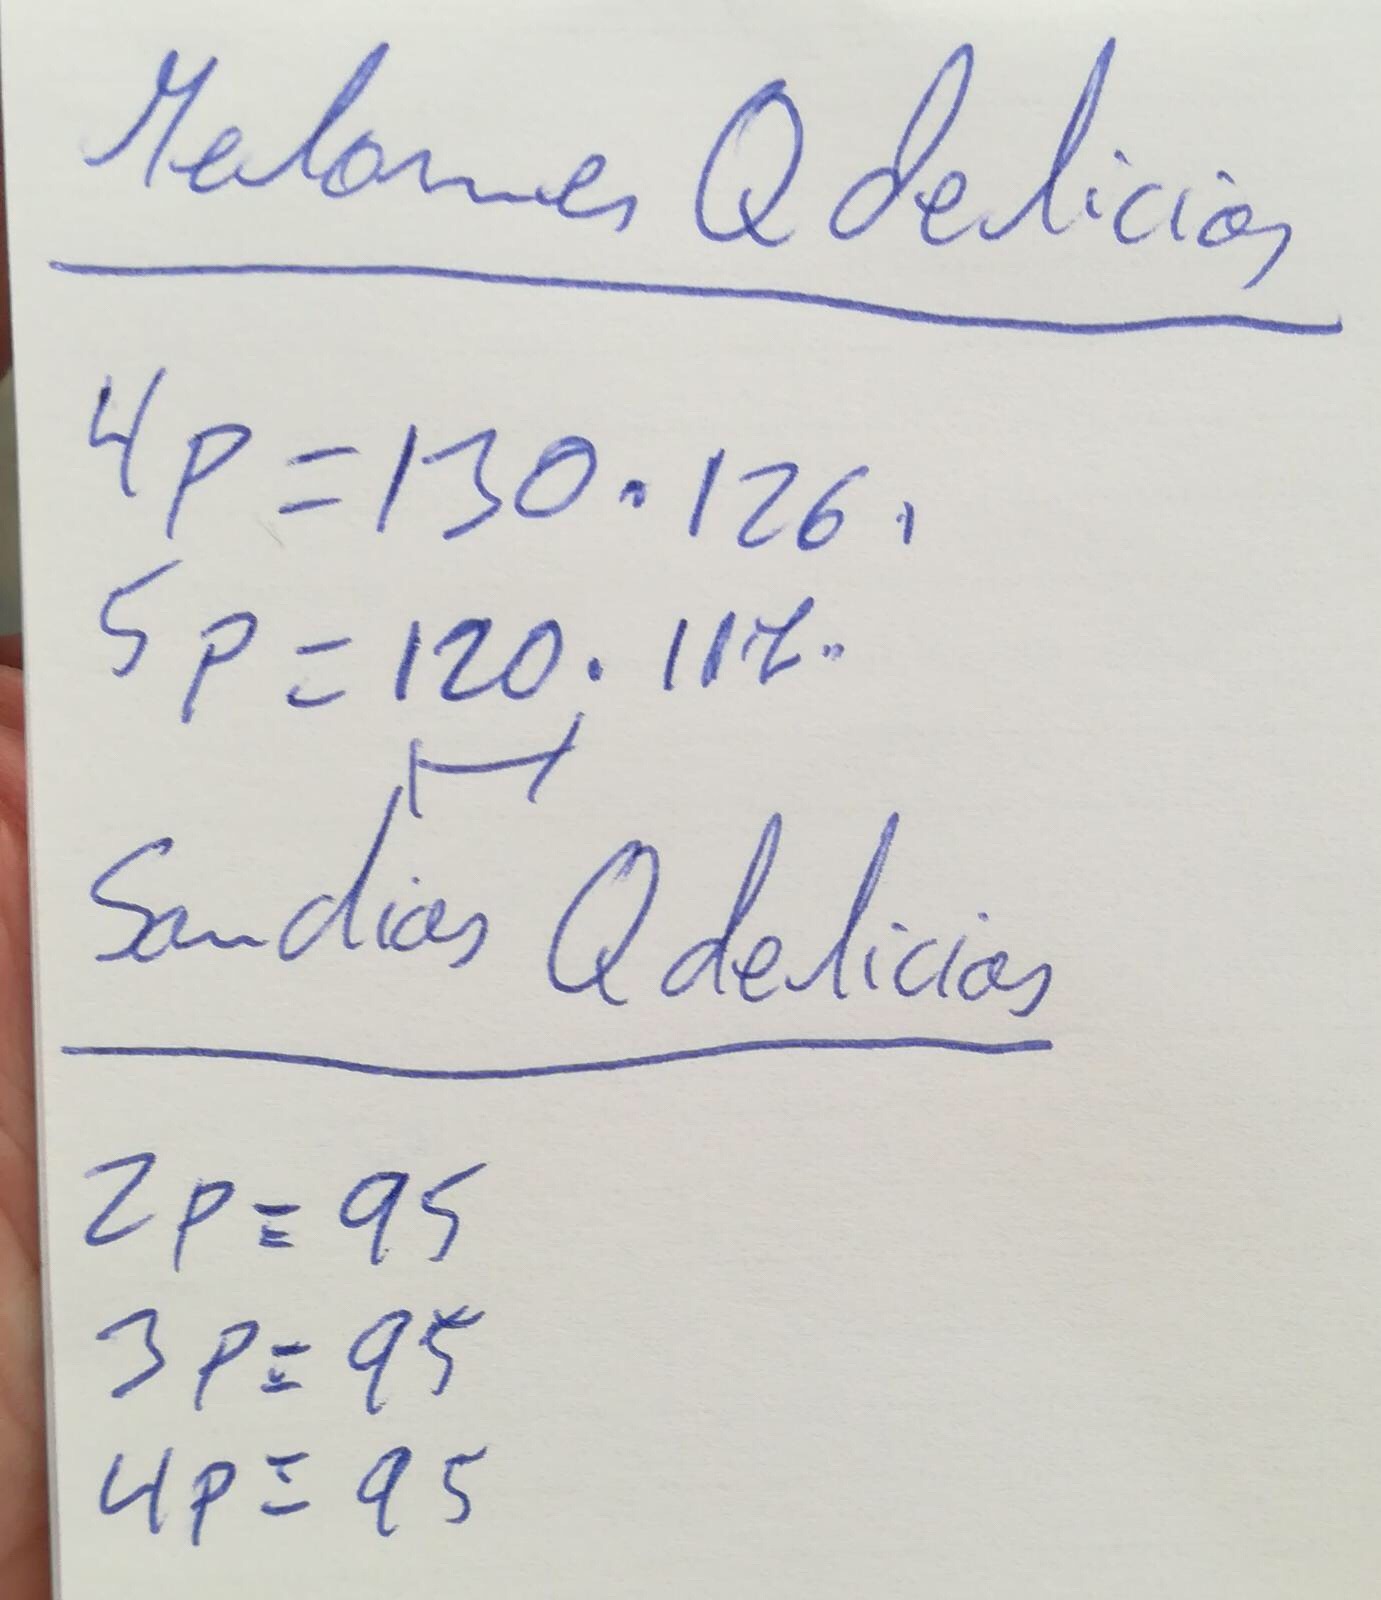 Melones Q delicias
4p = 130. 126,
5p = 120. 117.
Sandias Q delicias
2p = 95
3p = 95
4p = 95